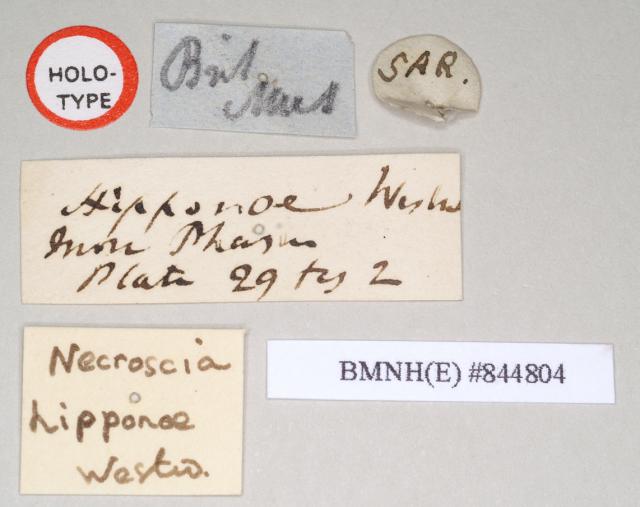 HOLO-
TYPE
Brit
Mus
SAR.
Hipponoe Westw
Mon Phasm
Plate 29 fig 2
Necroscia
hipponoe
Westw.
BMNH(E) #844804